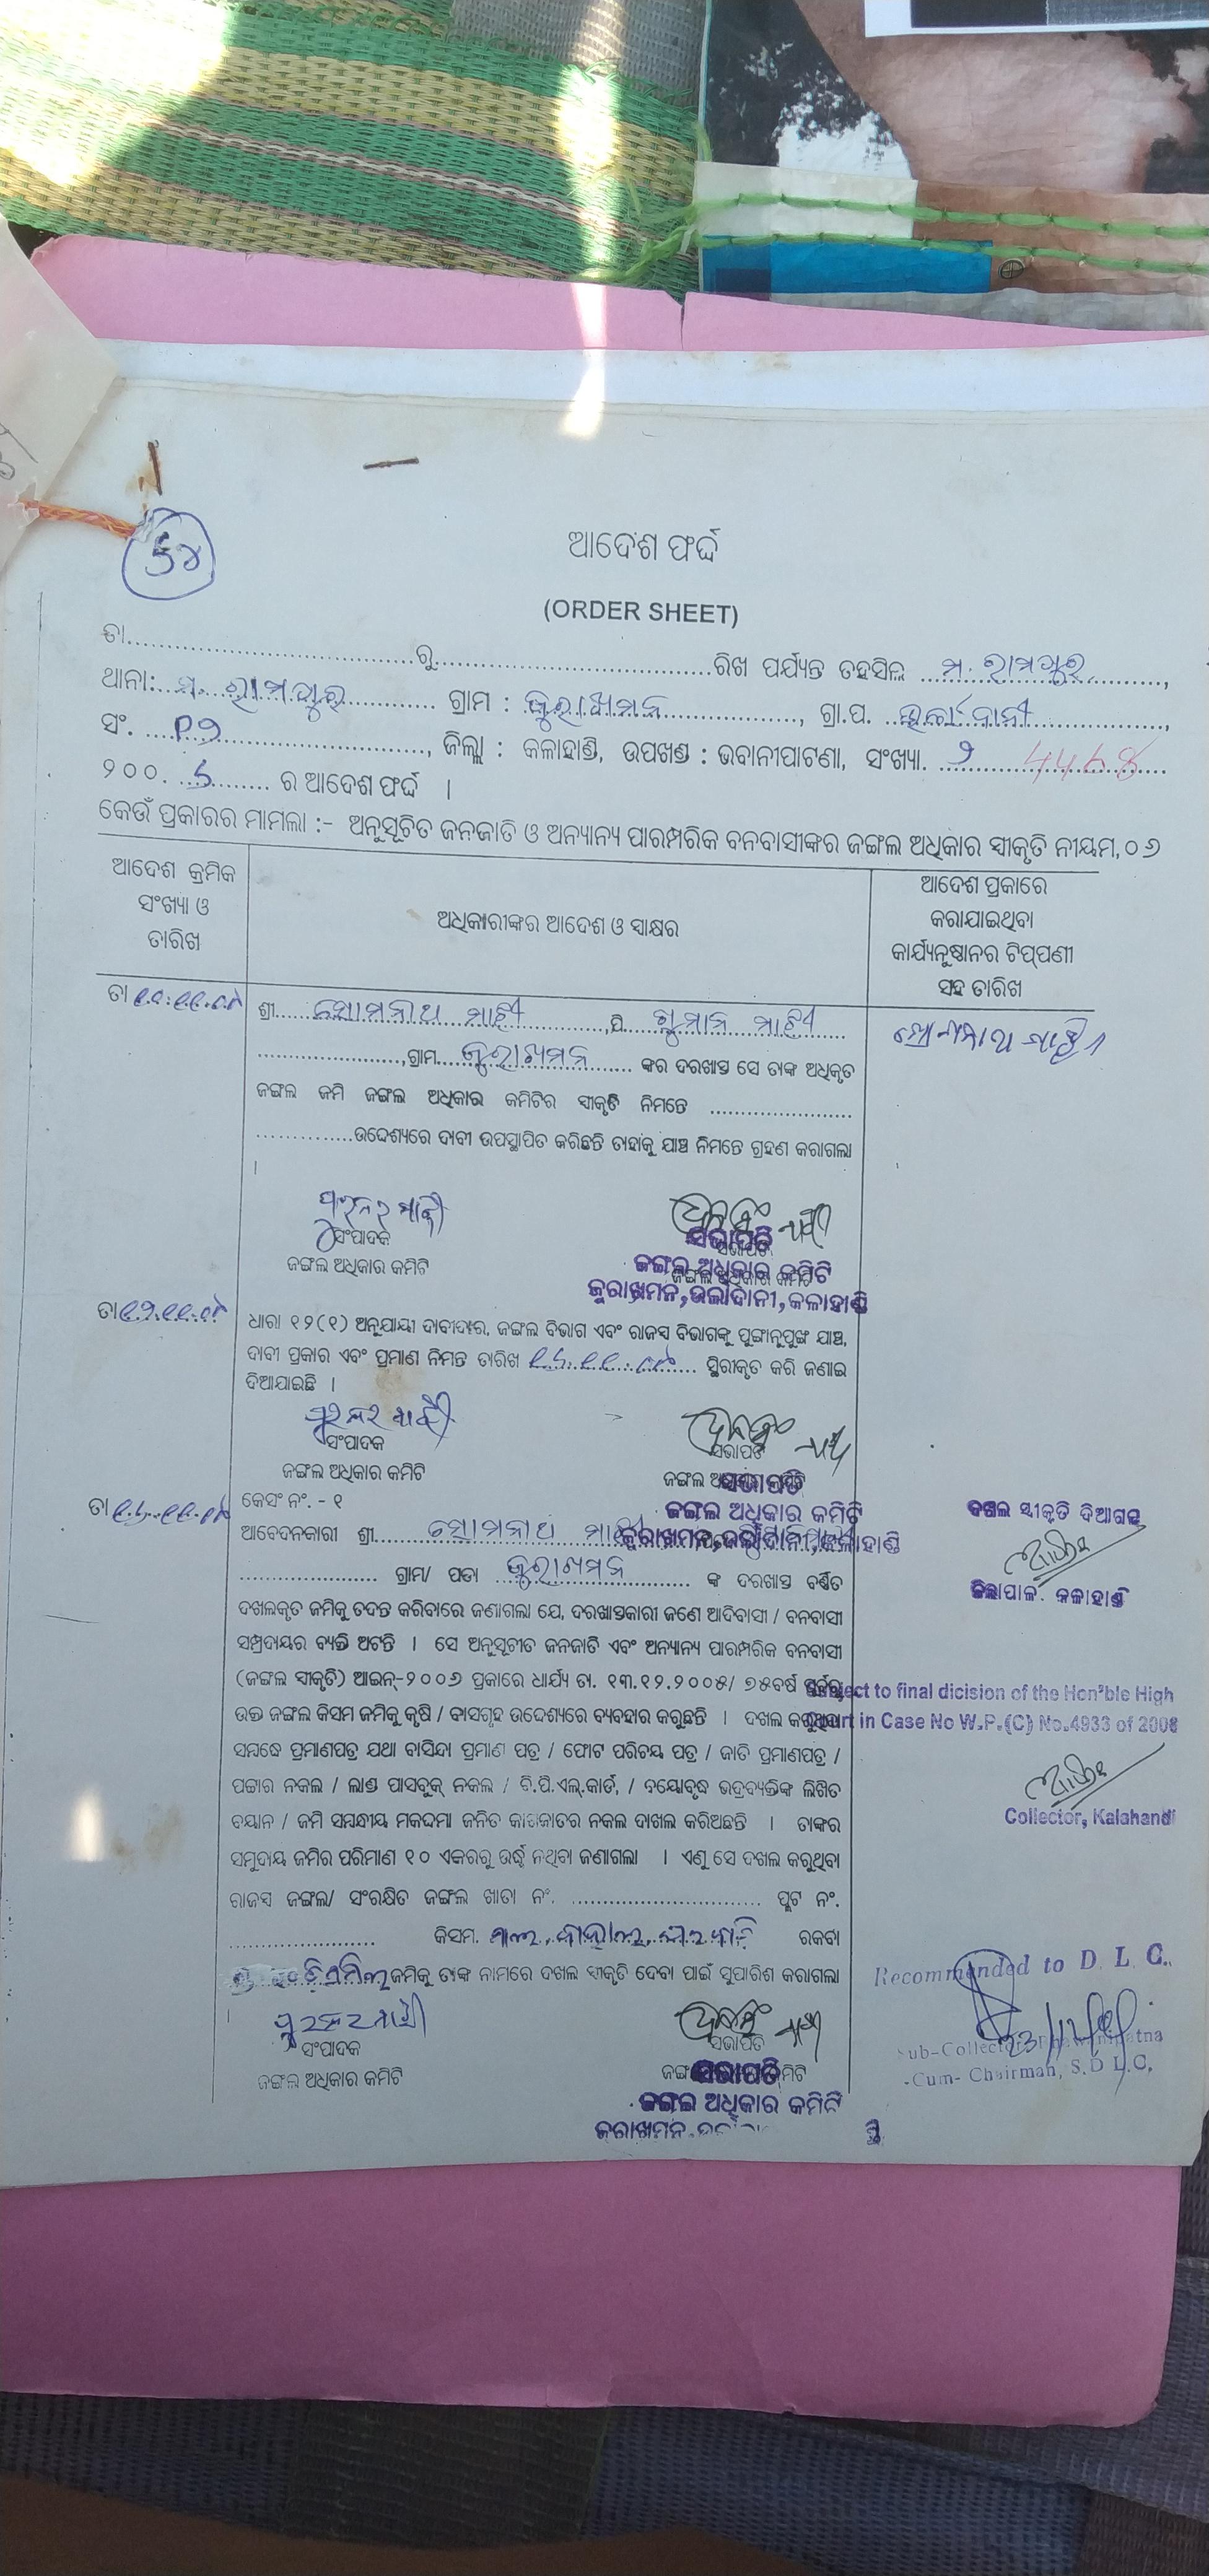 ଆଦେଶ ଫର୍ଦ୍ଦ
(ORDER SHEET)
ତା.......................ରୁ.......................ରିଖ ପର୍ଯ୍ୟନ୍ତ ତହସିଲ ମ. ରାମପୁର,
ଥାନା: ମ. ରାମପୁର ଗ୍ରାମ : କୁରାଖମନ, ଗ୍ରା.ପ.
ସଂ. ........, ଜିଲ୍ଲା : କଳାହାଣ୍ଡି, ଉପଖଣ୍ଡ : ଭବାନୀପାଟଣା, ସଂଖ୍ୟା. ୨ 4468
୨୦୦. ........ ର ଆଦେଶ ଫର୍ଦ୍ଦ ।
କେଉଁ ପ୍ରକାରର ମାମଲା :- ଅନୁସୂଚିତ ଜନଜାତି ଓ ଅନ୍ୟାନ୍ୟ ପାରମ୍ପରିକ ବନବାସୀଙ୍କର ଜଙ୍ଗଲ ଅଧିକାର ସ୍ୱୀକୃତି ନୀୟମ,୦୬
ଆଦେଶ କ୍ରମିକ
ସଂଖ୍ୟା ଓ
ତାରିଖ
ଅଧିକାରୀଙ୍କର ଆଦେଶ ଓ ସ୍ୱାକ୍ଷର
ଆଦେଶ ପ୍ରକାରେ
କରାଯାଇଥିବା
କାର୍ଯ୍ୟନୁଷ୍ଠାନର ଟିପ୍‌ପଣୀ
ସହ ତାରିଖ
ତା ୧୧.୧୧.୦୮
ଶ୍ରୀ. ସୋମନାଥ ମାଝୀ ,ପି. ଖୁମାନ ମାଝୀ
................,ଗ୍ରାମ. କୁରାଖମନ ଙ୍କର ଦରଖାସ୍ତ ସେ ତାଙ୍କ ଅଧିକୃତ
ଜଙ୍ଗଲ ଜମି ଜଙ୍ଗଲ ଅଧିକାର କମିଟିର ସ୍ୱୀକୃତି ନିମନ୍ତେ ................
............ଉଦ୍ଦେଶ୍ୟରେ ଦାବୀ ଉପସ୍ଥାପିତ କରିଛନ୍ତି ତାହାକୁ ଯାଞ୍ଚ ନିମନ୍ତେ ଗ୍ରହଣ କରାଗଲା
।
ସଂପାଦକ
ଜଙ୍ଗଲ ଅଧିକାର କମିଟି
ସଭାପତି
ଜଙ୍ଗଲ ଅଧିକାର କମିଟି
କୁରାଖମନ,ଉର୍ଲାଦାନୀ,କଳାହାଣ୍ଡି
ଧାରା ୧୨(୧) ଅନୁଯାୟୀ ଦାବୀଦାର, ଜଙ୍ଗଲ ବିଭାଗ ଏବଂ ରାଜସ୍ୱ ବିଭାଗଙ୍କୁ ପୁଙ୍ଖାନୁପୁଙ୍ଖ ଯାଞ୍ଚ,
ଦାବୀ ପ୍ରକାର ଏବଂ ପ୍ରମାଣ ନିମନ୍ତ ତାରିଖ ........ ସ୍ଥିରୀକୃତ କରି ଜଣାଇ
ଦିଆଯାଇଛି ।
ସଂପାଦକ
ଜଙ୍ଗଲ ଅଧିକାର କମିଟି
ସଭାପତି
ଜଙ୍ଗଲ ଅଧିକାର କମିଟି
କୁରାଖମନ,ଉର୍ଲାଦାନୀ,କଳାହାଣ୍ଡି
କେସଂ ନଂ. - ୧
ଆବେଦନକାରୀ ଶ୍ରୀ. ସୋମନାଥ ମାଝୀ
................ ଗ୍ରାମ/ ପଡା କୁରାଖମନ ଙ୍କ ଦରଖାସ୍ତ ବର୍ଣ୍ଣିତ
ଦଖଲକୃତ ଜମିକୁ ତଦନ୍ତ କରିବାରେ ଜଣାଗଲା ଯେ, ଦରଖାସ୍ତକାରୀ ଜଣେ ଆଦିବାସୀ / ବନବାସୀ
ସମ୍ପ୍ରଦାୟର ବ୍ୟକ୍ତି ଅଟନ୍ତି । ସେ ଅନୁସୂଚୀତ ଜନଜାତି ଏବଂ ଅନ୍ୟାନ୍ୟ ପାରମ୍ପରିକ ବନବାସୀ
(ଜଙ୍ଗଲ ସ୍ୱୀକୃତି) ଆଇନ୍-୨୦୦୬ ପ୍ରକାରେ ଧାର୍ଯ୍ୟ ତା. ୧୩.୧୨.୨୦୦୫/ ୭୫ବର୍ଷ ପୂର୍ବରୁ
ଉକ୍ତ ଜଙ୍ଗଲ କିସମ ଜମିକୁ କୃଷି / ବାସଗୃହ ଉଦ୍ଦେଶ୍ୟରେ ବ୍ୟବହାର କରୁଛନ୍ତି । ଦଖଲ କରୁଥିବା
ସମ୍ବନ୍ଧେ ପ୍ରମାଣପତ୍ର ଯଥା ବାସିନ୍ଦା ପ୍ରମାଣ ପତ୍ର / ଫୋଟ ପରିଚୟ ପତ୍ର / ଜାତି ପ୍ରମାଣପତ୍ର /
ପଟ୍ଟାର ନକଲ / ଲାଣ୍ଡ ପାସବୁକ୍ ନକଲ / ବି.ପି.ଏଲ୍.କାର୍ଡ, / ବୟୋବୃଦ୍ଧ ଭଦ୍ରବ୍ୟକ୍ତିଙ୍କ ଲିଖିତ
ବୟାନ / ଜମି ସମ୍ବନ୍ଧୀୟ ମକଦ୍ଦମା ଜନିତ କାଗଜାତର ନକଲ ଦାଖଲ କରିଅଛନ୍ତି । ତାଙ୍କର
ସମୁଦାୟ ଜମିର ପରିମାଣ ୧୦ ଏକରରୁ ଉର୍ଦ୍ଧ୍ୱ ନଥିବା ଜଣାଗଲା । ଏଣୁ ସେ ଦଖଲ କରୁଥିବା
ରାଜସ୍ୱ ଜଙ୍ଗଲ/ ସଂରକ୍ଷିତ ଜଙ୍ଗଲ ଖାତା ନଂ. ................ ପ୍ଲଟ ନଂ.
................ କିସମ. ........ ରକବା
ଜମିକୁ ତାଙ୍କ ନାମରେ ଦଖଲ ସ୍ୱୀକୃତି ଦେବା ପାଇଁ ସୁପାରିଶ କରାଗଲା
।
ସଂପାଦକ
ଜଙ୍ଗଲ ଅଧିକାର କମିଟି
ସଭାପତି
ଜଙ୍ଗଲ ଅଧିକାର କମିଟି
ଦଖଲ ସ୍ୱୀକୃତି ଦିଆଗଲା
ଜିଲ୍ଲାପାଳ. କଳାହାଣ୍ଡି
Subject to final dicision of the Hon'ble High
Court in Case No W.P.(C) No.4933 of 2008
Collector, Kalahandi
Recommended to D. L. C.
Sub-Collector, Bhawanipatna
-Cum- Chairman, S.D L.C,